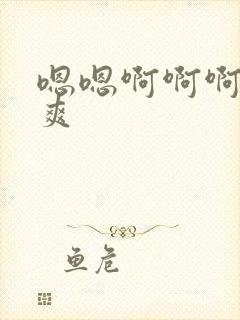 嗯嗯啊啊啊
爽
鱼危